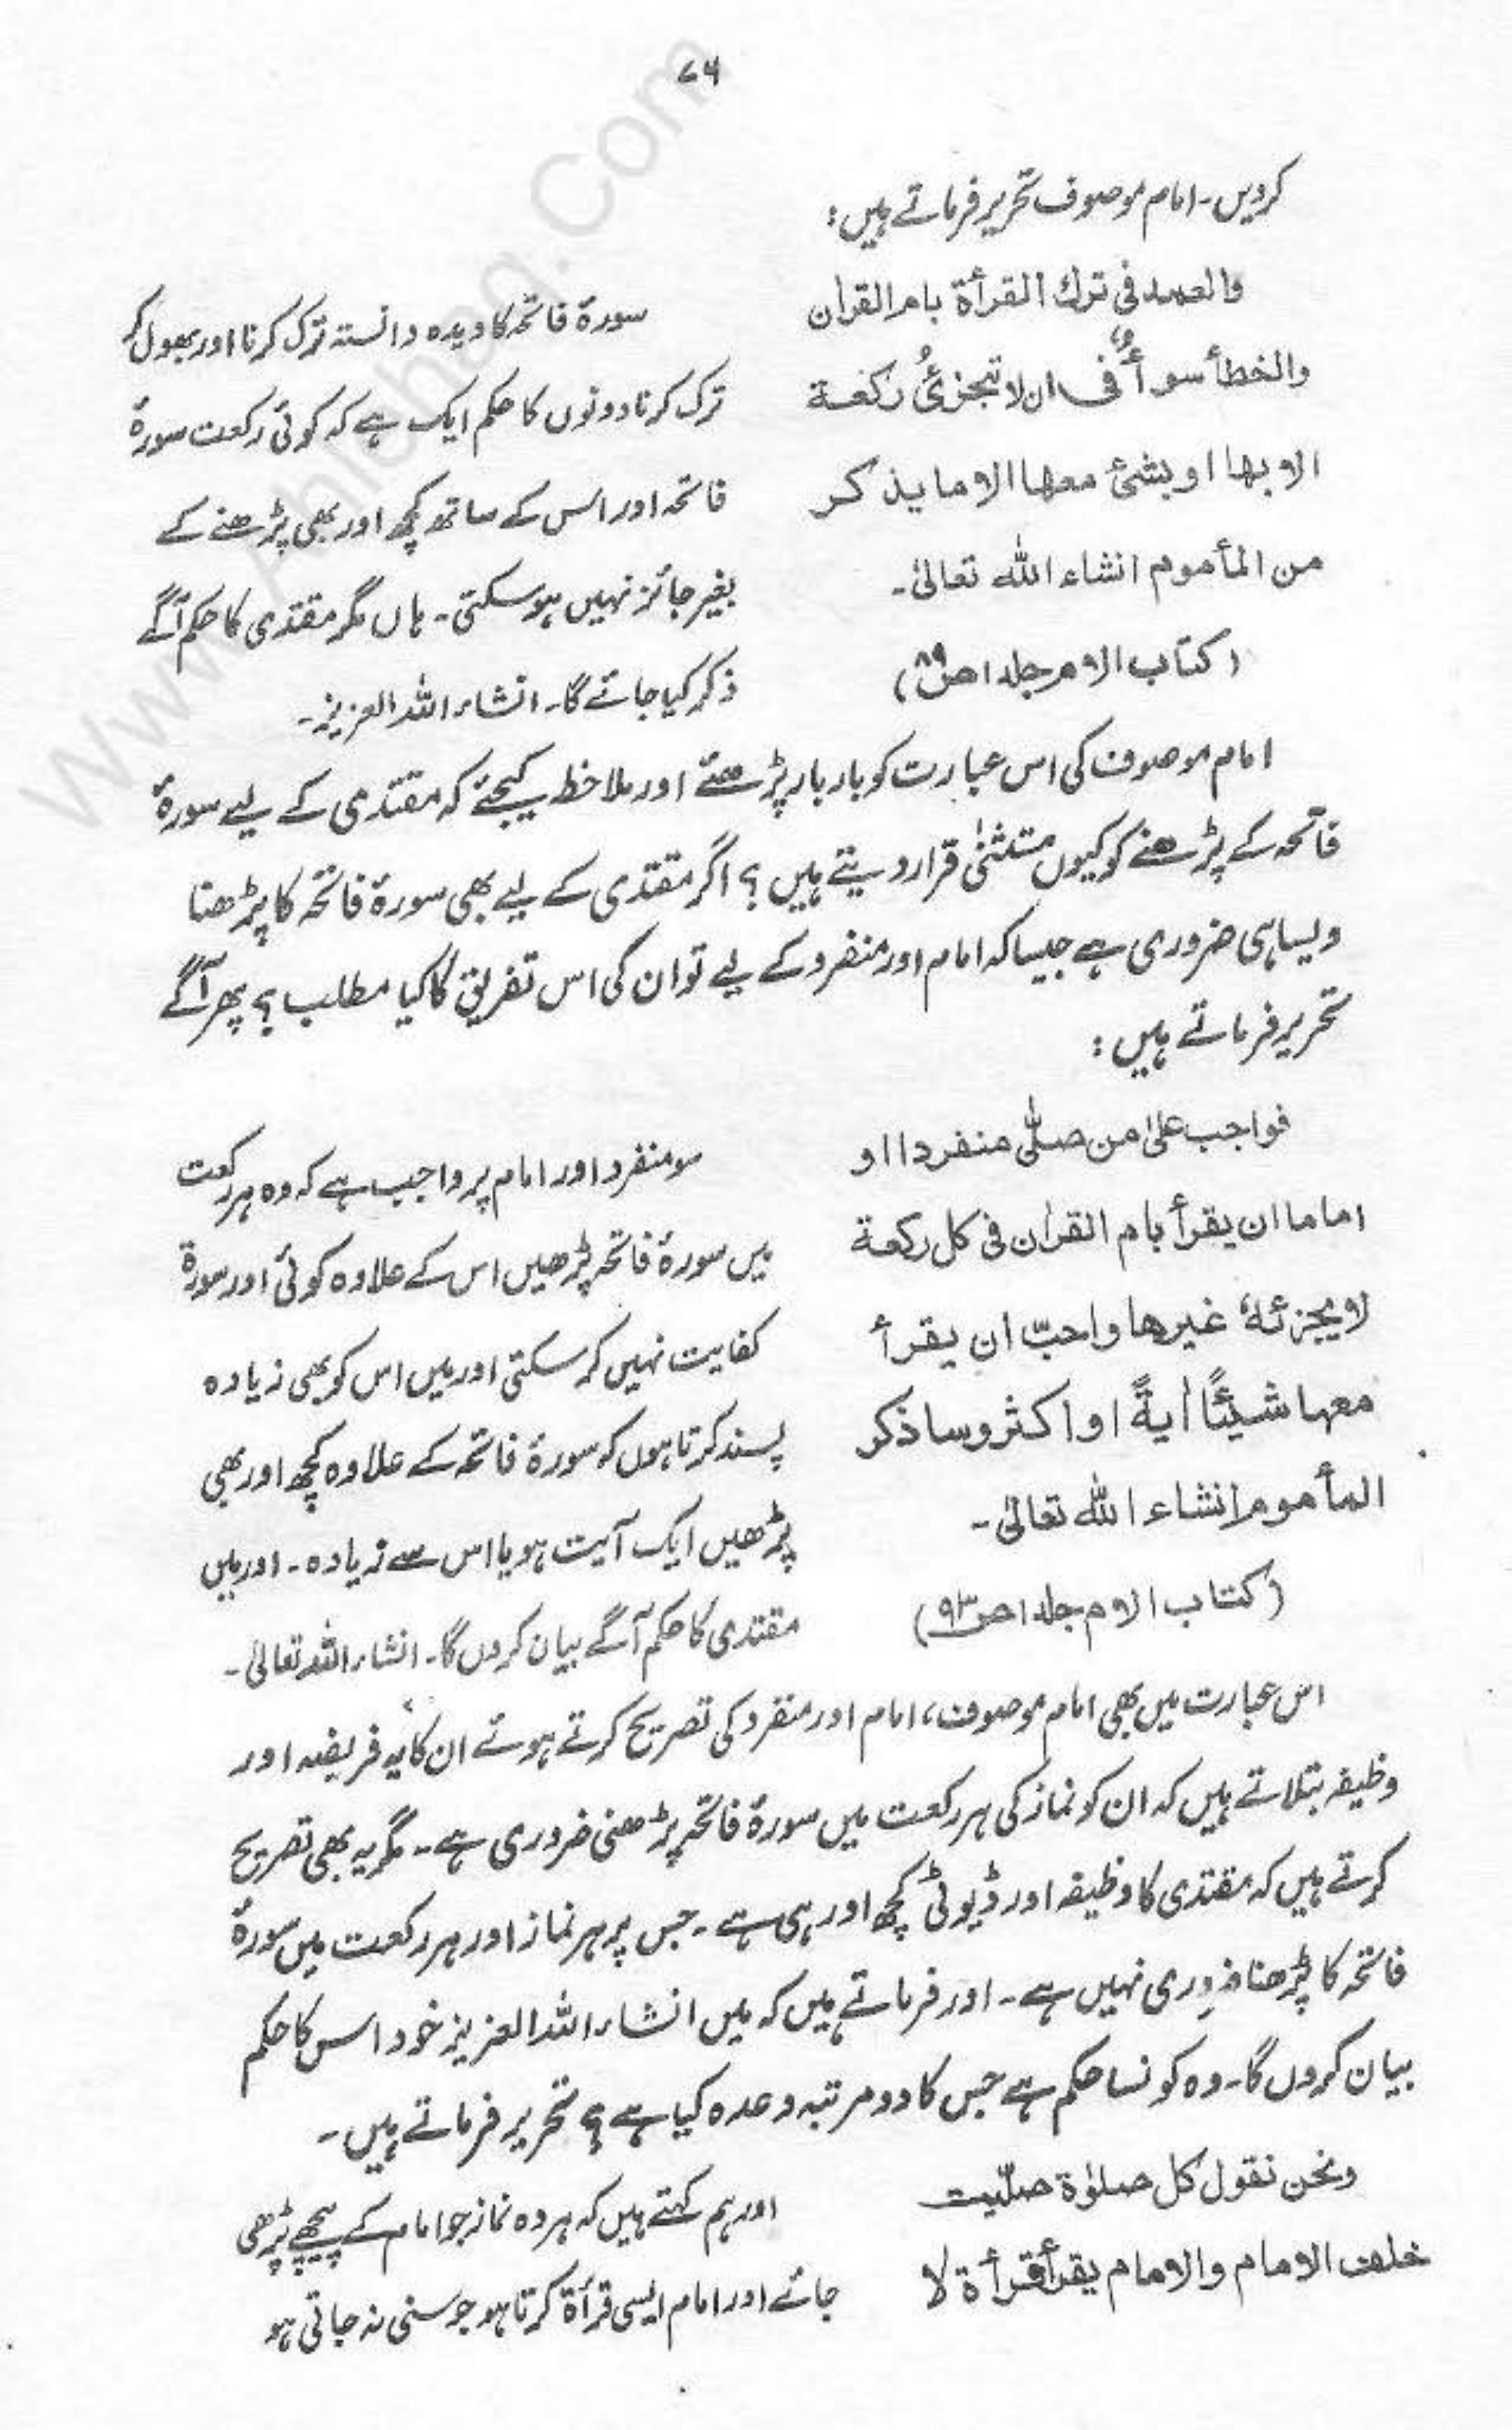 ۷۶
کردیں۔ امام موصوف تحریر فرماتے ہیں:
والعمد فی ترك القرأة بام القرأن
والخطأ سوأٌ فی ان لا تجزئُ ركعة
الا بها او بشئ معها الا ما يذكر
من المأموم انشاء الله تعالىٰ۔
(كتاب الام جلد ۱ ص ۸۹)
سورۂ فاتحہ کا دیدہ دانستہ ترک کرنا اور بھول کر
ترک کرنا دونوں کا حکم ایک ہے کہ کوئی رکعت سورۂ
فاتحہ اور اس کے ساتھ کچھ اور بھی پڑھنے کے
بغیر جائز نہیں ہو سکتی۔ ہاں مگر مقتدی کا حکم آگے
ذکر کیا جائے گا۔ انشاء اللہ العزیز۔
امام موصوف کی اس عبارت کو بار بار پڑھئے اور ملاحظہ کیجئے کہ مقتدی کے لیے سورۂ
فاتحہ کے پڑھنے کو کیوں مستثنیٰ قرار دیتے ہیں؟ اگر مقتدی کے لیے بھی سورۂ فاتحہ کا پڑھنا
ویسا ہی ضروری ہے جیسا کہ امام اور منفرد کے لیے تو ان کی اس تفریق کا کیا مطلب؟ پھر آگے
تحریر فرماتے ہیں:
فواجب علیٰ من صلّٰی منفردا او
اماما ان يقرأ بام القرأن فی كل ركعة
لا يجزئهٗ غيرها واحبّ ان يقرأ
معها شيئًا أيةً او اكثر وساذكر
المأموم انشاء الله تعالىٰ۔
(كتاب الام جلد ۱ ص ۹۳)
سو منفرد اور امام پر واجب ہے کہ وہ ہر رکعت
میں سورۂ فاتحہ پڑھیں اس کے علاوہ کوئی اور سورۃ
کفایت نہیں کر سکتی اور میں اس کو بھی زیادہ
پسند کرتا ہوں کہ سورۂ فاتحہ کے علاوہ کچھ اور بھی
پڑھیں ایک آیت ہو یا اس سے زیادہ۔ اور میں
مقتدی کا حکم آگے بیان کروں گا۔ انشاء اللہ تعالیٰ۔
اس عبارت میں بھی امام موصوف، امام اور منفرد کی تصریح کرتے ہوئے ان کا یہ فریضہ اور
وظیفہ بتلاتے ہیں کہ ان کو نماز کی ہر رکعت میں سورۂ فاتحہ پڑھنی ضروری ہے۔ مگر یہ بھی تصریح
کرتے ہیں کہ مقتدی کا وظیفہ اور ڈیوٹی کچھ اور ہی ہے۔ جس پر ہر نماز اور ہر رکعت میں سورۂ
فاتحہ کا پڑھنا ضروری نہیں ہے۔ اور فرماتے ہیں کہ میں انشاء اللہ العزیز خود اس کا حکم
بیان کروں گا۔ وہ کونسا حکم ہے جس کا دو مرتبہ وعدہ کیا ہے؟ تحریر فرماتے ہیں۔
ونحن نقول كل صلوٰة صلّيت
خلف الامام والامام يقرأ قرأة لا
اور ہم کہتے ہیں کہ ہر وہ نماز جو امام کے پیچھے پڑھی
جائے اور امام ایسی قرأۃ کرتا ہو جو سنی نہ جاتی ہو
www.Ahlehaq.Com